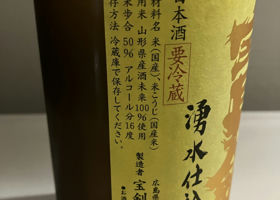 湧水仕込
日本酒
要冷蔵
原材料名 米(国産)、米こうじ(国産米)
使用米 山形県産酒未来100%使用
精米歩合 50% アルコール分16度
保存方法 冷蔵庫で保存してください。
製造者 宝剣
広島県
●お酒